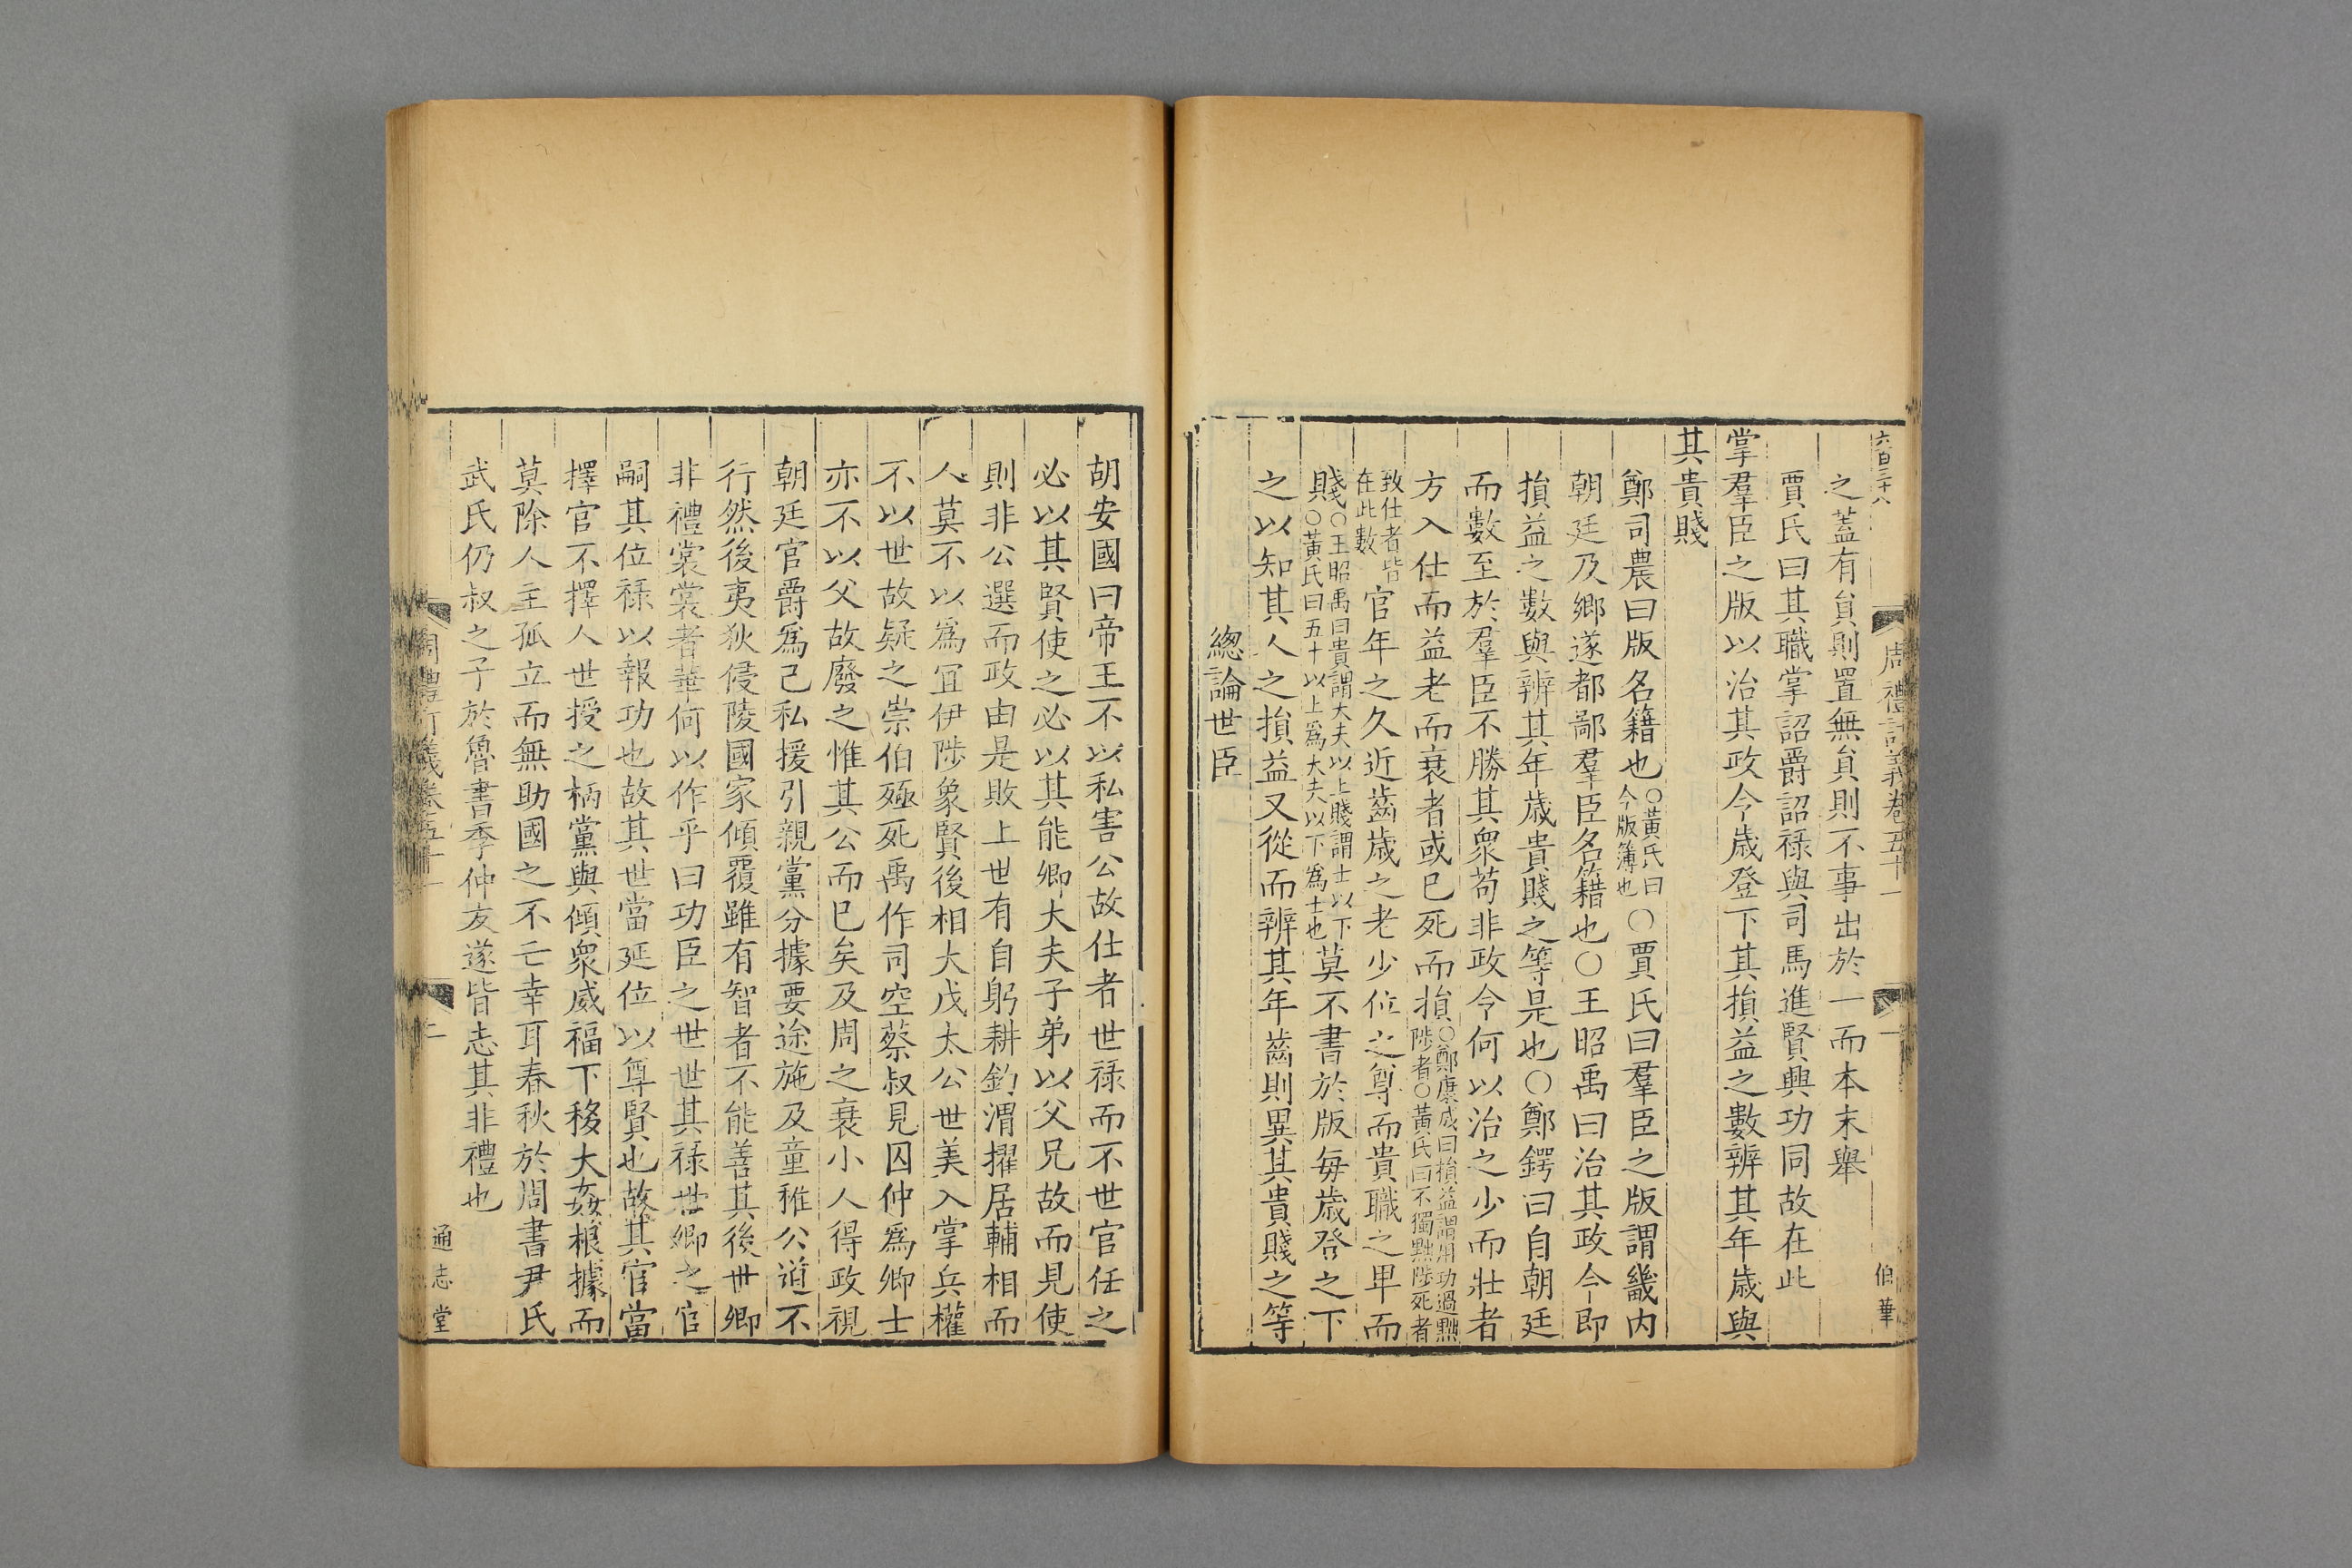 六百三十八
周禮訂義卷五十一
一
伯華
之蓋有貟則置無貟則不事出於一而本末舉
賈氏曰其職掌詔爵詔祿與司馬進賢興功同故在此
掌羣臣之版以治其政令歲登下其損益之數辨其年歲與
其貴賤
鄭司農曰版名籍也○黃氏曰今版簿也○賈氏曰羣臣之版謂畿内
朝廷及鄉遂都鄙羣臣名籍也○王昭禹曰治其政令即
損益之數與辨其年歲貴賤之等是也○鄭鍔曰自朝廷
而數至於羣臣不勝其衆苟非政令何以治之少而壯者
方入仕而益老而衰者或已死而損○鄭康成曰損益謂用功過黜陟者○黃氏曰不獨黜陟死者
致仕者皆在此數官年之久近齒歲之老少位之尊而貴職之卑而
賤○王昭禹曰貴謂大夫以上賤謂士以下○黃氏曰五十以上爲大夫以下爲士也莫不書於版每歲登之下
之以知其人之損益又從而辨其年齒則異其貴賤之等
緫論世臣
胡安國曰帝王不以私害公故仕者世祿而不世官任之
必以其賢使之必以其能卿大夫子弟以父兄故而見使
則非公選而政由是敗上世有自躬耕釣渭擢居輔相而
人莫不以爲冝伊陟象賢後相大戊太公世美入掌兵權
不以世故疑之崇伯殛死禹作司空蔡叔見囚仲爲卿士
亦不以父故廢之惟其公而已矣及周之衰小人得政視
朝廷官爵爲己私援引親黨分據要途施及童稚公道不
行然後夷狄侵陵國家傾覆雖有智者不能善其後世卿
非禮裳裳者華何以作乎曰功臣之世世其祿世卿之官
嗣其位祿以報功也故其世當延位以尊賢也故其官當
擇官不擇人世授之柄黨與傾衆威福下移大姦根據而
莫除人主孤立而無助國之不亡幸耳春秋於周書尹氏
武氏仍叔之子於魯書季仲友遂皆志其非禮也
周禮訂義卷五十一
二
通志堂